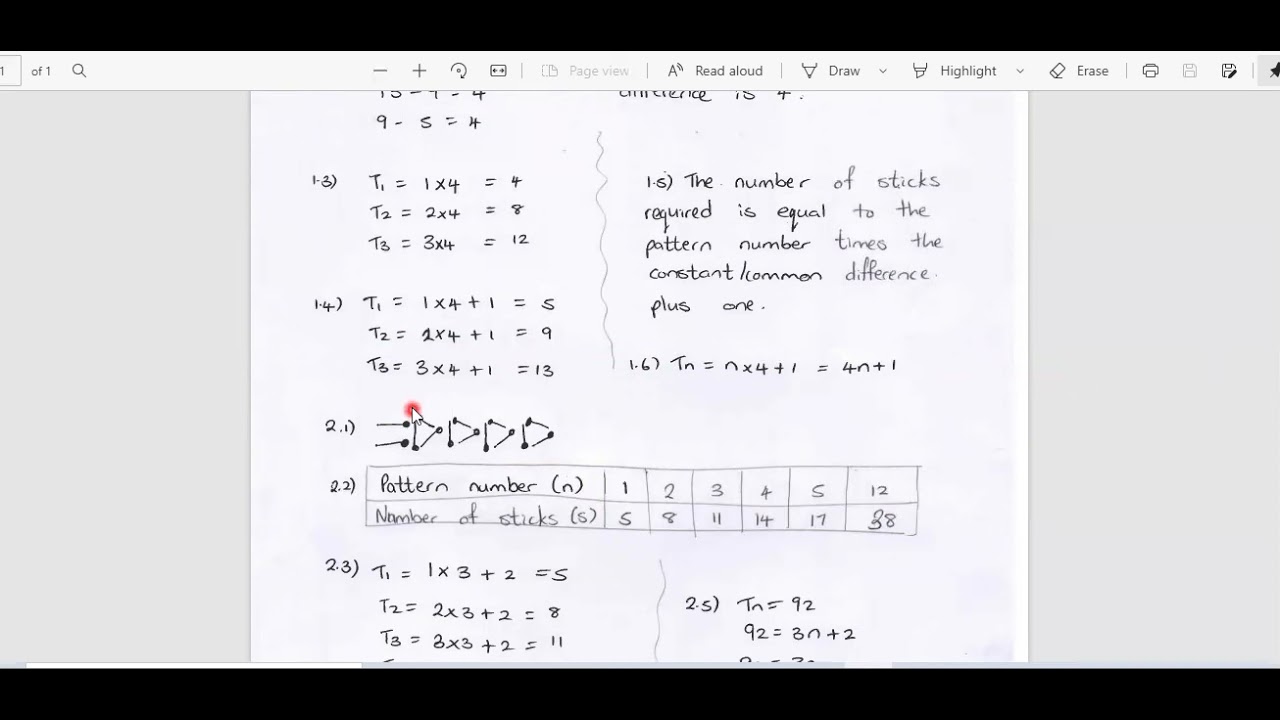 1 of 1 Page view Read aloud Draw Highlight Erase
difference is 4.
9 - 5 = 4
1.3) T1 = 1x4 = 4
T2 = 2x4 = 8
T3 = 3x4 = 12
1.4) T1 = 1x4 + 1 = 5
T2 = 2x4 + 1 = 9
T3 = 3x4 + 1 = 13
1.5) The number of sticks
required is equal to the
pattern number times the
constant/common difference
plus one.
1.6) Tn = n x 4 + 1 = 4n + 1
2.1)
2.2) Pattern number (n) 1 2 3 4 5 12
Number of sticks (s) 5 8 11 14 17 38
2.3) T1 = 1 x 3 + 2 = 5
T2 = 2x3 + 2 = 8
T3 = 3x3 + 2 = 11
2.5) Tn = 92
92 = 3n + 2